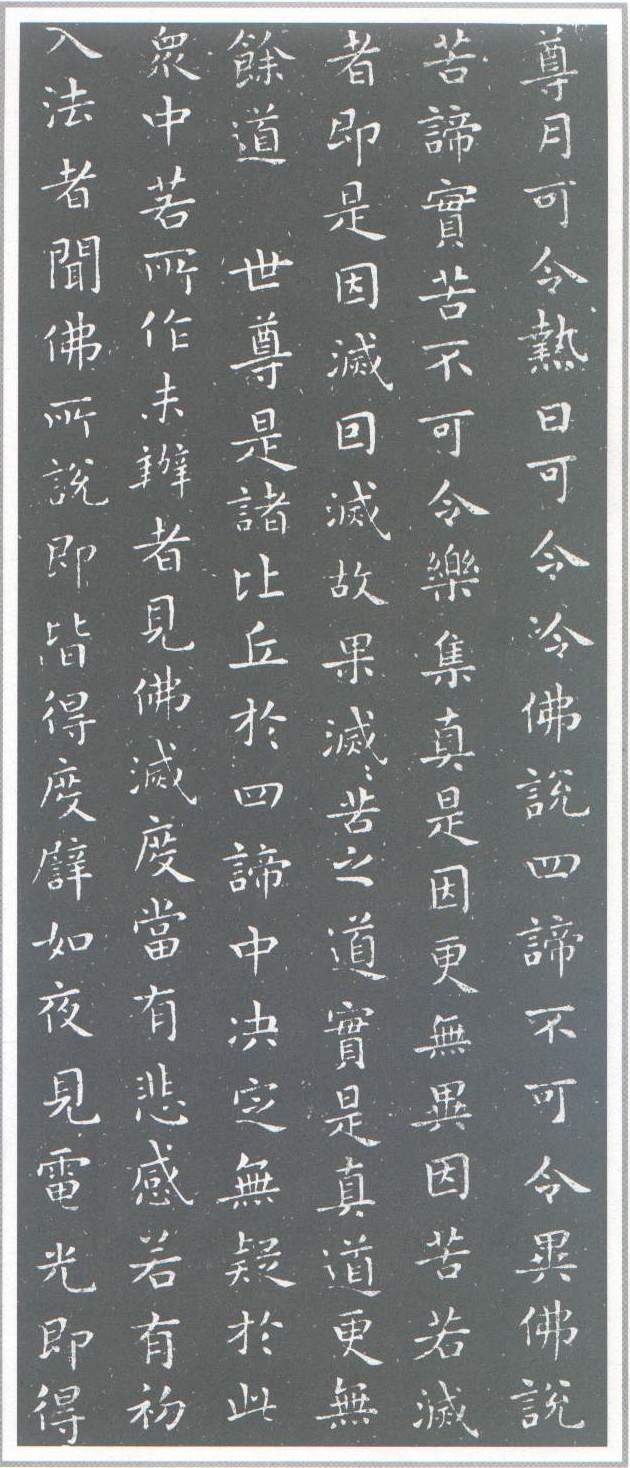 尊月可令熱日可令冷佛說四諦不可令異佛說
苦諦實苦不可令樂集真是因更無異因苦若滅
者即是因滅回滅故果滅〻苦之道實是真道更無
餘道　世尊是諸比丘於四諦中决定無疑於此
衆中若所作未辦者見佛滅度當有悲感若有初
入法者聞佛所說即皆得度譬如夜見電光即得